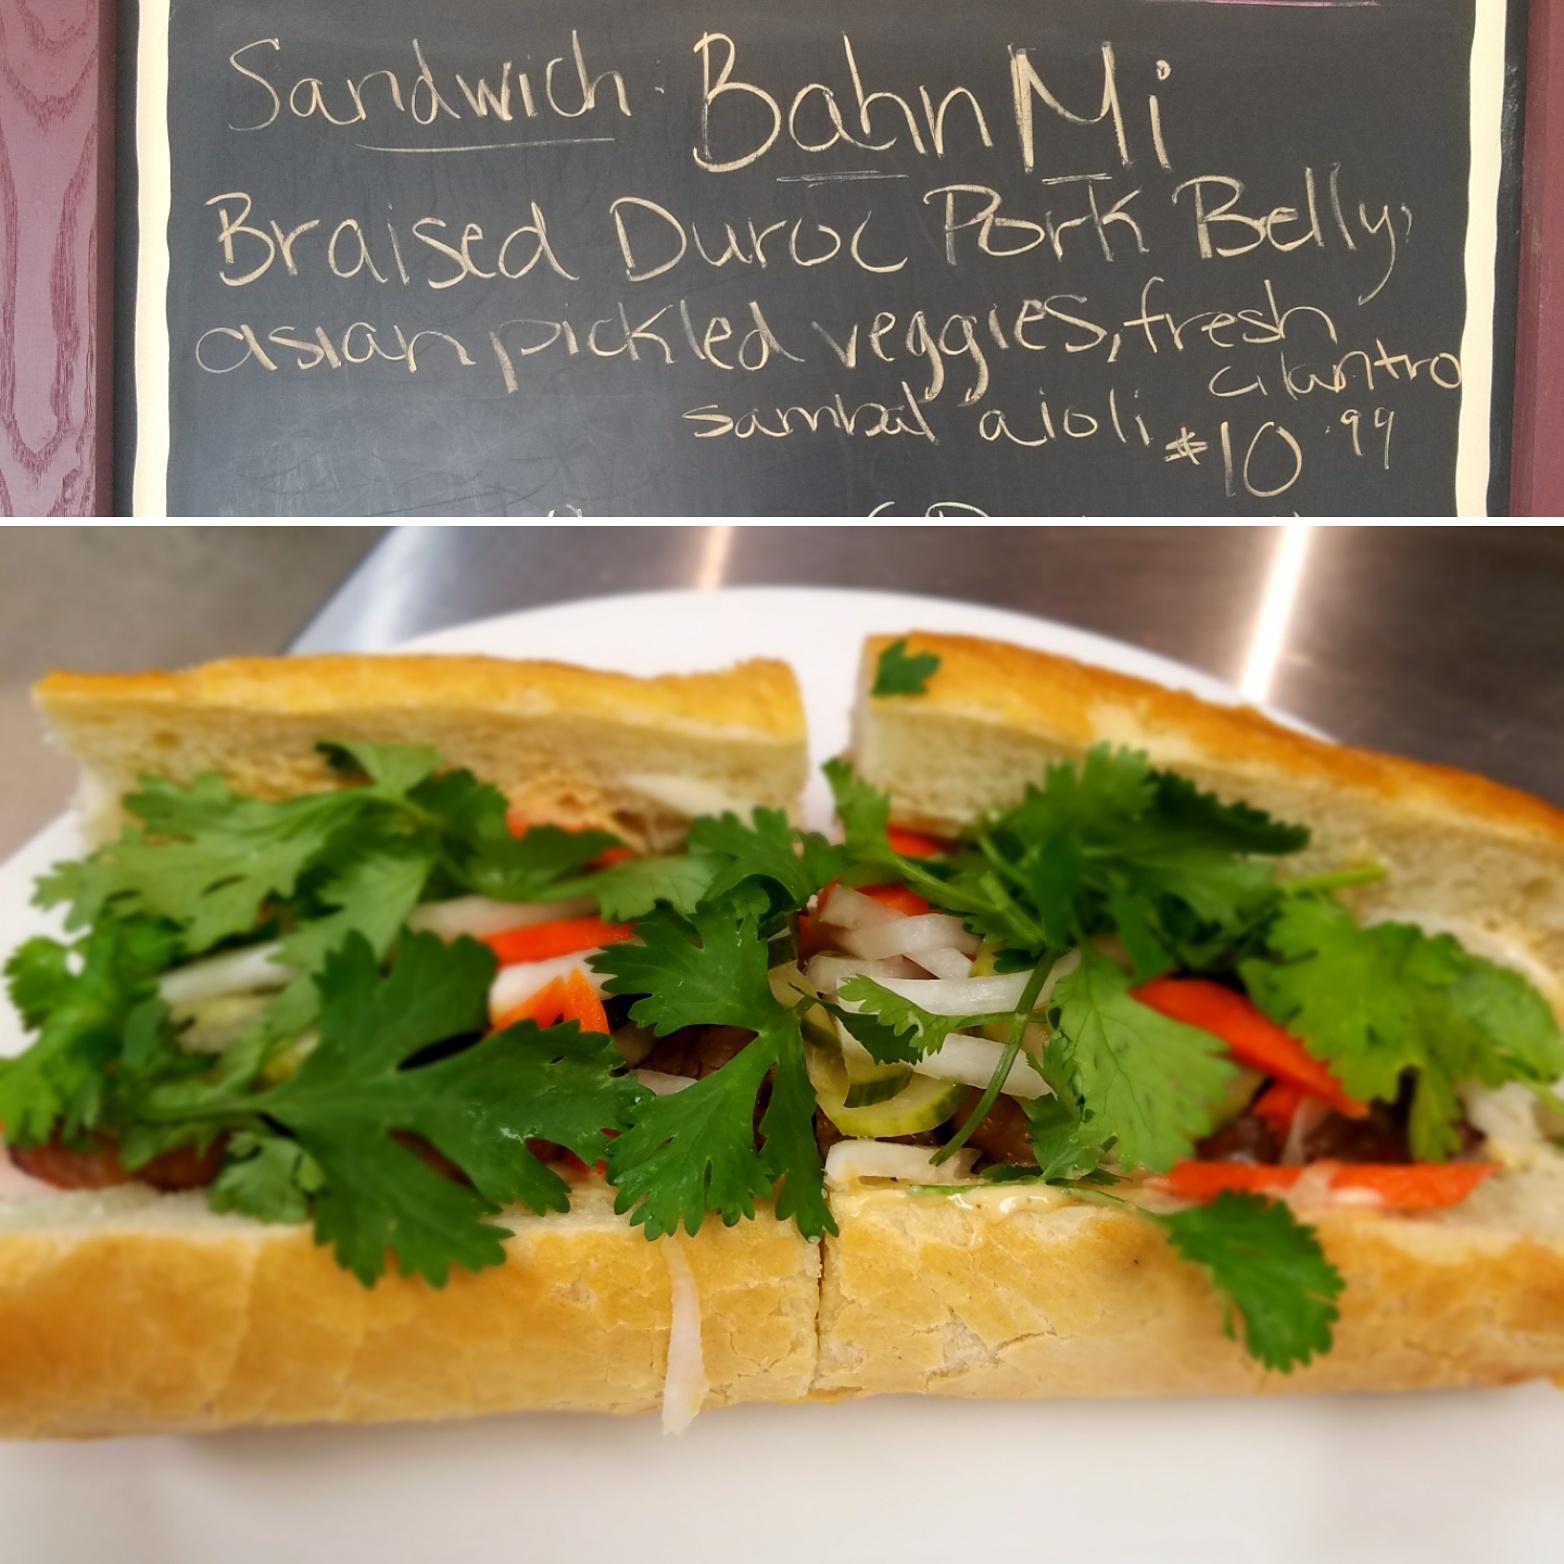 Sandwich · Bahn Mi
Braised Duroc Pork Belly,
asian pickled veggies, fresh
cilantro
sambal aioli $10.99